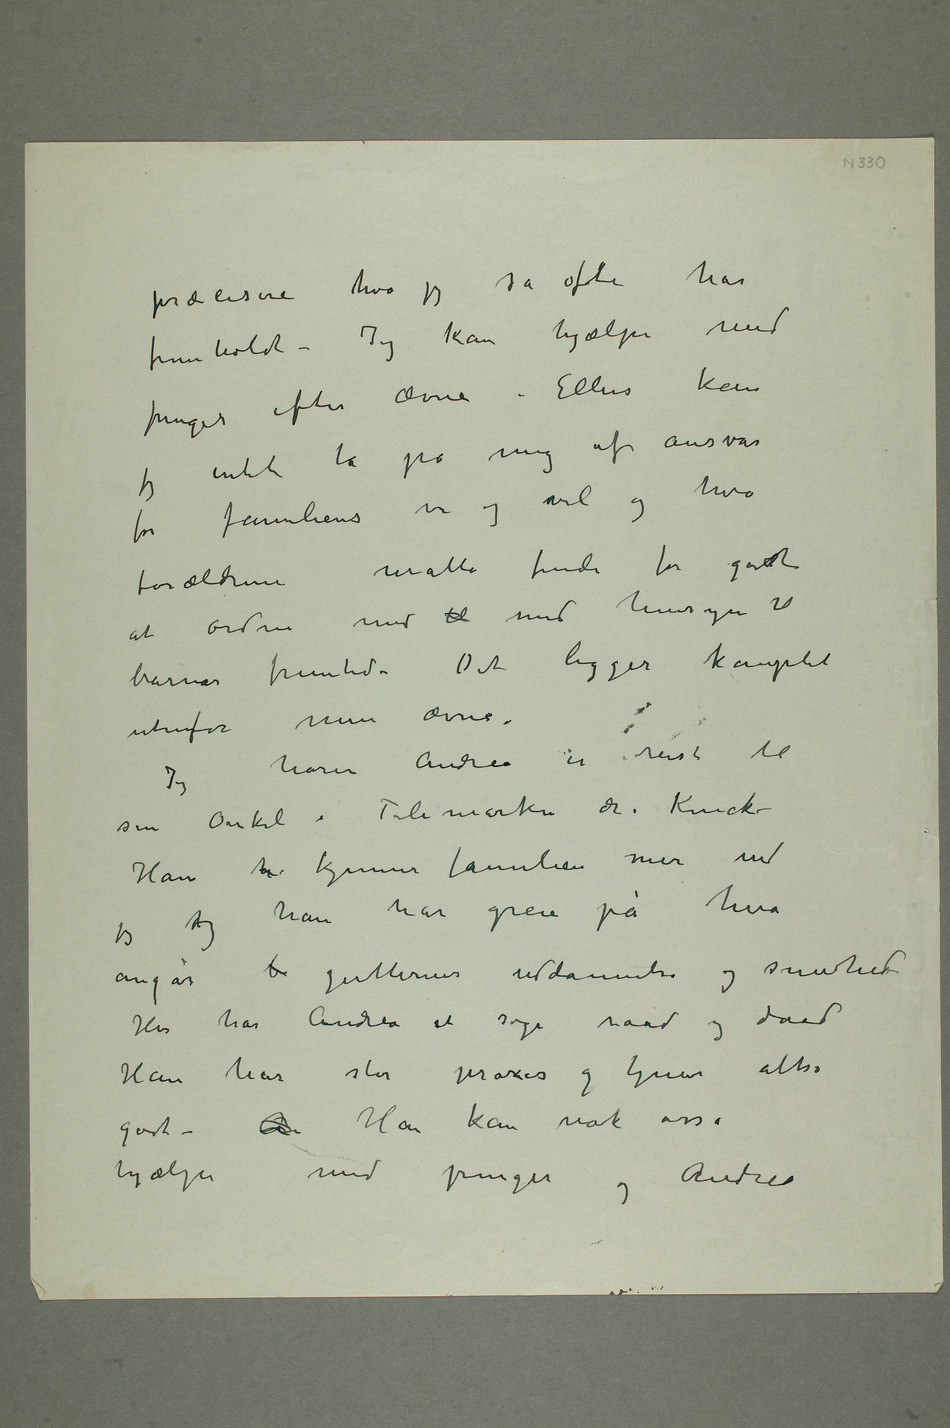 N 330
præcisere hva jeg så ofte har
fremholdt – Jeg kan hjælpe med
penger efter ævne – Ellers kan
jeg intet ta på mig af ansvar
for familiens ve og vel og hva
forældrene måtte finde for godt
at ordne med til med hensyn til
barnas fremtid – Det ligger komplet
utenfor min ævne.
Jeg hører Andrea er reist til
sin Onkel i Telemarken dr. Kinck –
Han h kjenner familien mer end
jeg og han har greie på hva
angår b gutternes uddannelse og sundhed
Her har Andrea at søge raad og daad
Han har stor praxis og tjener altså
godt – An Han kan nok osså
hjælpe med penger og Andrea